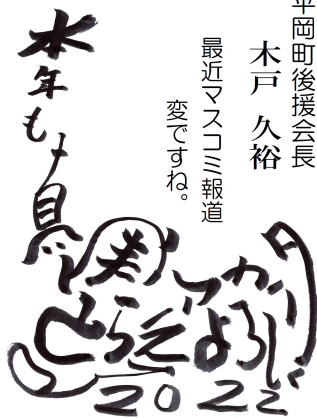 平岡町後援会長
木戸 久裕
最近マスコミ報道
変ですね。
本年も
しっかり
とらえ
よろし
2022